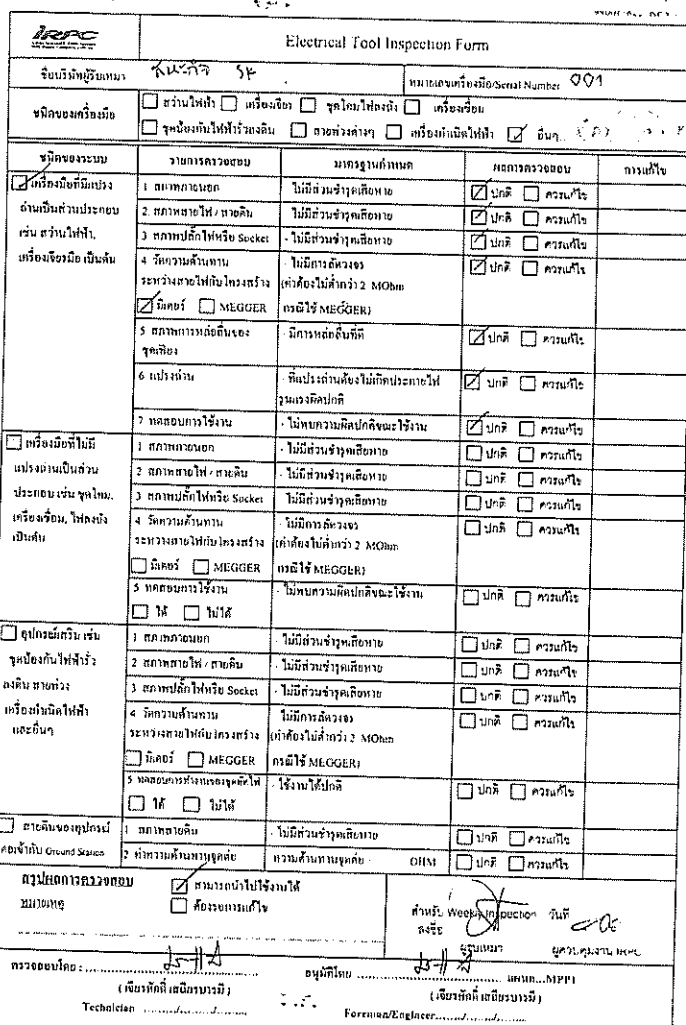 IRPC
Electrical Tool Inspection Form
ชื่อบริษัทผู้รับเหมา ธนะกิจ SK หมายเลขเครื่องมือ/Serial Number 001
ชนิดของเครื่องมือ สว่านไฟฟ้า เครื่องเจียร ชุดโคมไฟลงถัง เครื่องเชื่อม
ชุดป้องกันไฟฟ้ารั่วลงดิน สายพ่วงต่างๆ เครื่องกำเนิดไฟฟ้า อื่นๆ
ชนิดของระบบ รายการตรวจสอบ มาตรฐานกำหนด ผลการตรวจสอบ การแก้ไข
เครื่องมือที่มีแปรง
ถ่านเป็นส่วนประกอบ
เช่น สว่านไฟฟ้า,
เครื่องเจียรมือ เป็นต้น
1 สภาพภายนอก - ไม่มีส่วนชำรุดเสียหาย ปกติ ควรแก้ไข
2. สภาพสายไฟ / สายดิน ไม่มีส่วนชำรุดเสียหาย ปกติ ควรแก้ไข
3 สภาพปลั๊กไฟหรือ Socket - ไม่มีส่วนชำรุดเสียหาย ปกติ ควรแก้ไข
4 วัดความต้านทาน - ไม่มีการลัดวงจร ปกติ ควรแก้ไข
ระหว่างสายไฟกับโครงสร้าง (ค่าต้องไม่ต่ำกว่า 2 MOhm
มิเตอร์ MEGGER กรณีใช้ MEGGER)
5 สภาพการหล่อลื่นของ - มีการหล่อลื่นที่ดี ปกติ ควรแก้ไข
ชุดเฟือง
6 แปรงถ่าน - ที่แปรงถ่านต้องไม่เกิดประกายไฟ ปกติ ควรแก้ไข
รุนแรงผิดปกติ
7 ทดสอบการใช้งาน - ไม่พบความผิดปกติขณะใช้งาน ปกติ ควรแก้ไข
เครื่องมือที่ไม่มี
แปรงถ่านเป็นส่วน
ประกอบ เช่น ชุดโคม,
เครื่องเชื่อม, ไฟลงถัง
เป็นต้น
1 สภาพภายนอก - ไม่มีส่วนชำรุดเสียหาย ปกติ ควรแก้ไข
2 สภาพสายไฟ / สายดิน - ไม่มีส่วนชำรุดเสียหาย ปกติ ควรแก้ไข
3 สภาพปลั๊กไฟหรือ Socket ไม่มีส่วนชำรุดเสียหาย ปกติ ควรแก้ไข
4 วัดความต้านทาน - ไม่มีการลัดวงจร ปกติ ควรแก้ไข
ระหว่างสายไฟกับโครงสร้าง (ค่าต้องไม่ต่ำกว่า 2 MOhm
มิเตอร์ MEGGER กรณีใช้ MEGGER)
5 ทดสอบการใช้งาน - ไม่พบความผิดปกติขณะใช้งาน ปกติ ควรแก้ไข
ได้ ไม่ได้
อุปกรณ์เสริม เช่น
ชุดป้องกันไฟฟ้ารั่ว
ลงดิน สายพ่วง
เครื่องกำเนิดไฟฟ้า
และอื่นๆ
1 สภาพภายนอก - ไม่มีส่วนชำรุดเสียหาย ปกติ ควรแก้ไข
2 สภาพสายไฟ / สายดิน - ไม่มีส่วนชำรุดเสียหาย ปกติ ควรแก้ไข
3 สภาพปลั๊กไฟหรือ Socket - ไม่มีส่วนชำรุดเสียหาย ปกติ ควรแก้ไข
4 วัดความต้านทาน ไม่มีการลัดวงจร ปกติ ควรแก้ไข
ระหว่างสายไฟกับโครงสร้าง (ค่าต้องไม่ต่ำกว่า 2 MOhm
มิเตอร์ MEGGER กรณีใช้ MEGGER)
5 ทดสอบการทำงานของชุดตัดไฟ - ใช้งานได้ปกติ ปกติ ควรแก้ไข
ได้ ไม่ได้
สายดินของอุปกรณ์
ต่อเข้ากับ Ground Station
1 สภาพสายดิน - ไม่มีส่วนชำรุดเสียหาย ปกติ ควรแก้ไข
2 ค่าความต้านทานจุดต่อ ความต้านทานจุดต่อ OHM ปกติ ควรแก้ไข
สรุปผลการตรวจสอบ สามารถนำไปใช้งานได้
หมายเหตุ ต้องรอการแก้ไข
สำหรับ Weekly Inspection วันที่
ลงชื่อ
ผู้รับเหมา ผู้ควบคุมงาน IRPC
ตรวจสอบโดย : อนุมัติโดย แผนก...MPP1
( เจียรศักดิ์ เสถียรบารมี ) ( เจียรศักดิ์ เสถียรบารมี )
Technician Foreman/Engineer